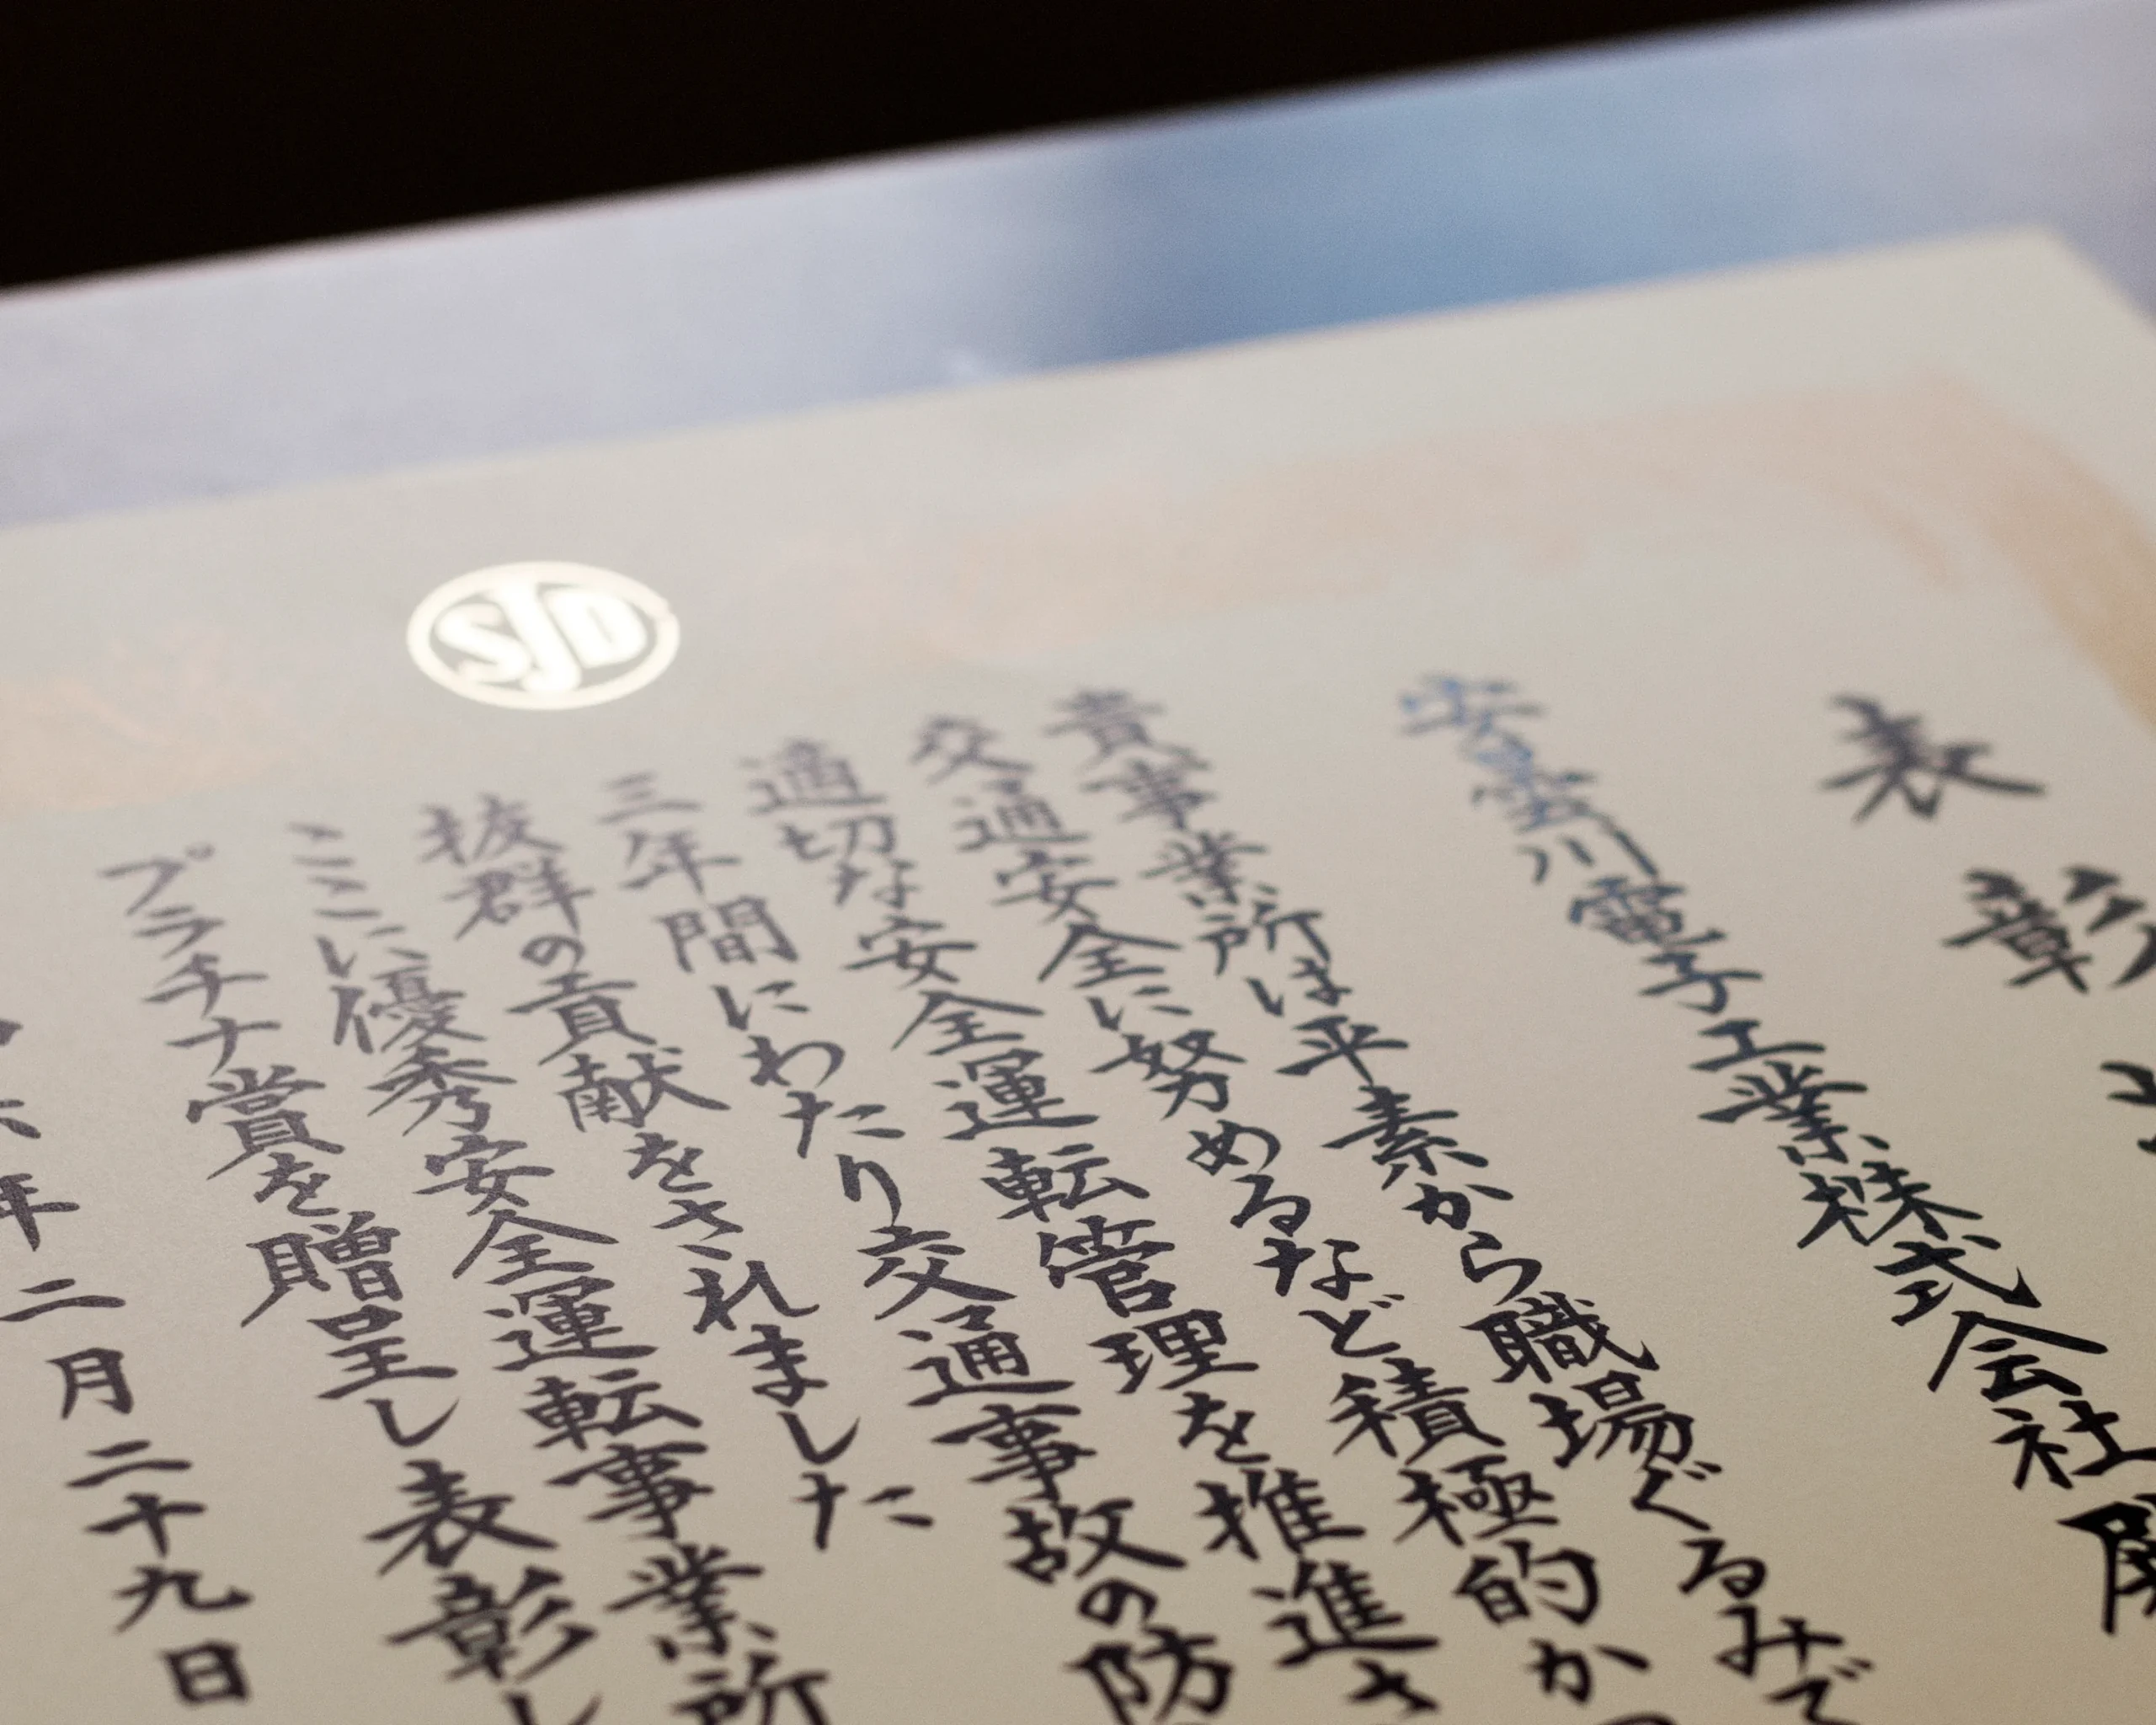 表彰
安曇川電子工業株式会社
貴事業所は平素から職場ぐるみで
交通安全に努めるなど積極的か
適切な安全運転管理を推進さ
三年間にわたり交通事故の防
抜群の貢献をされました
ここに優秀安全運転事業所
プラチナ賞を贈呈し表彰し
年二月二十九日
SJD